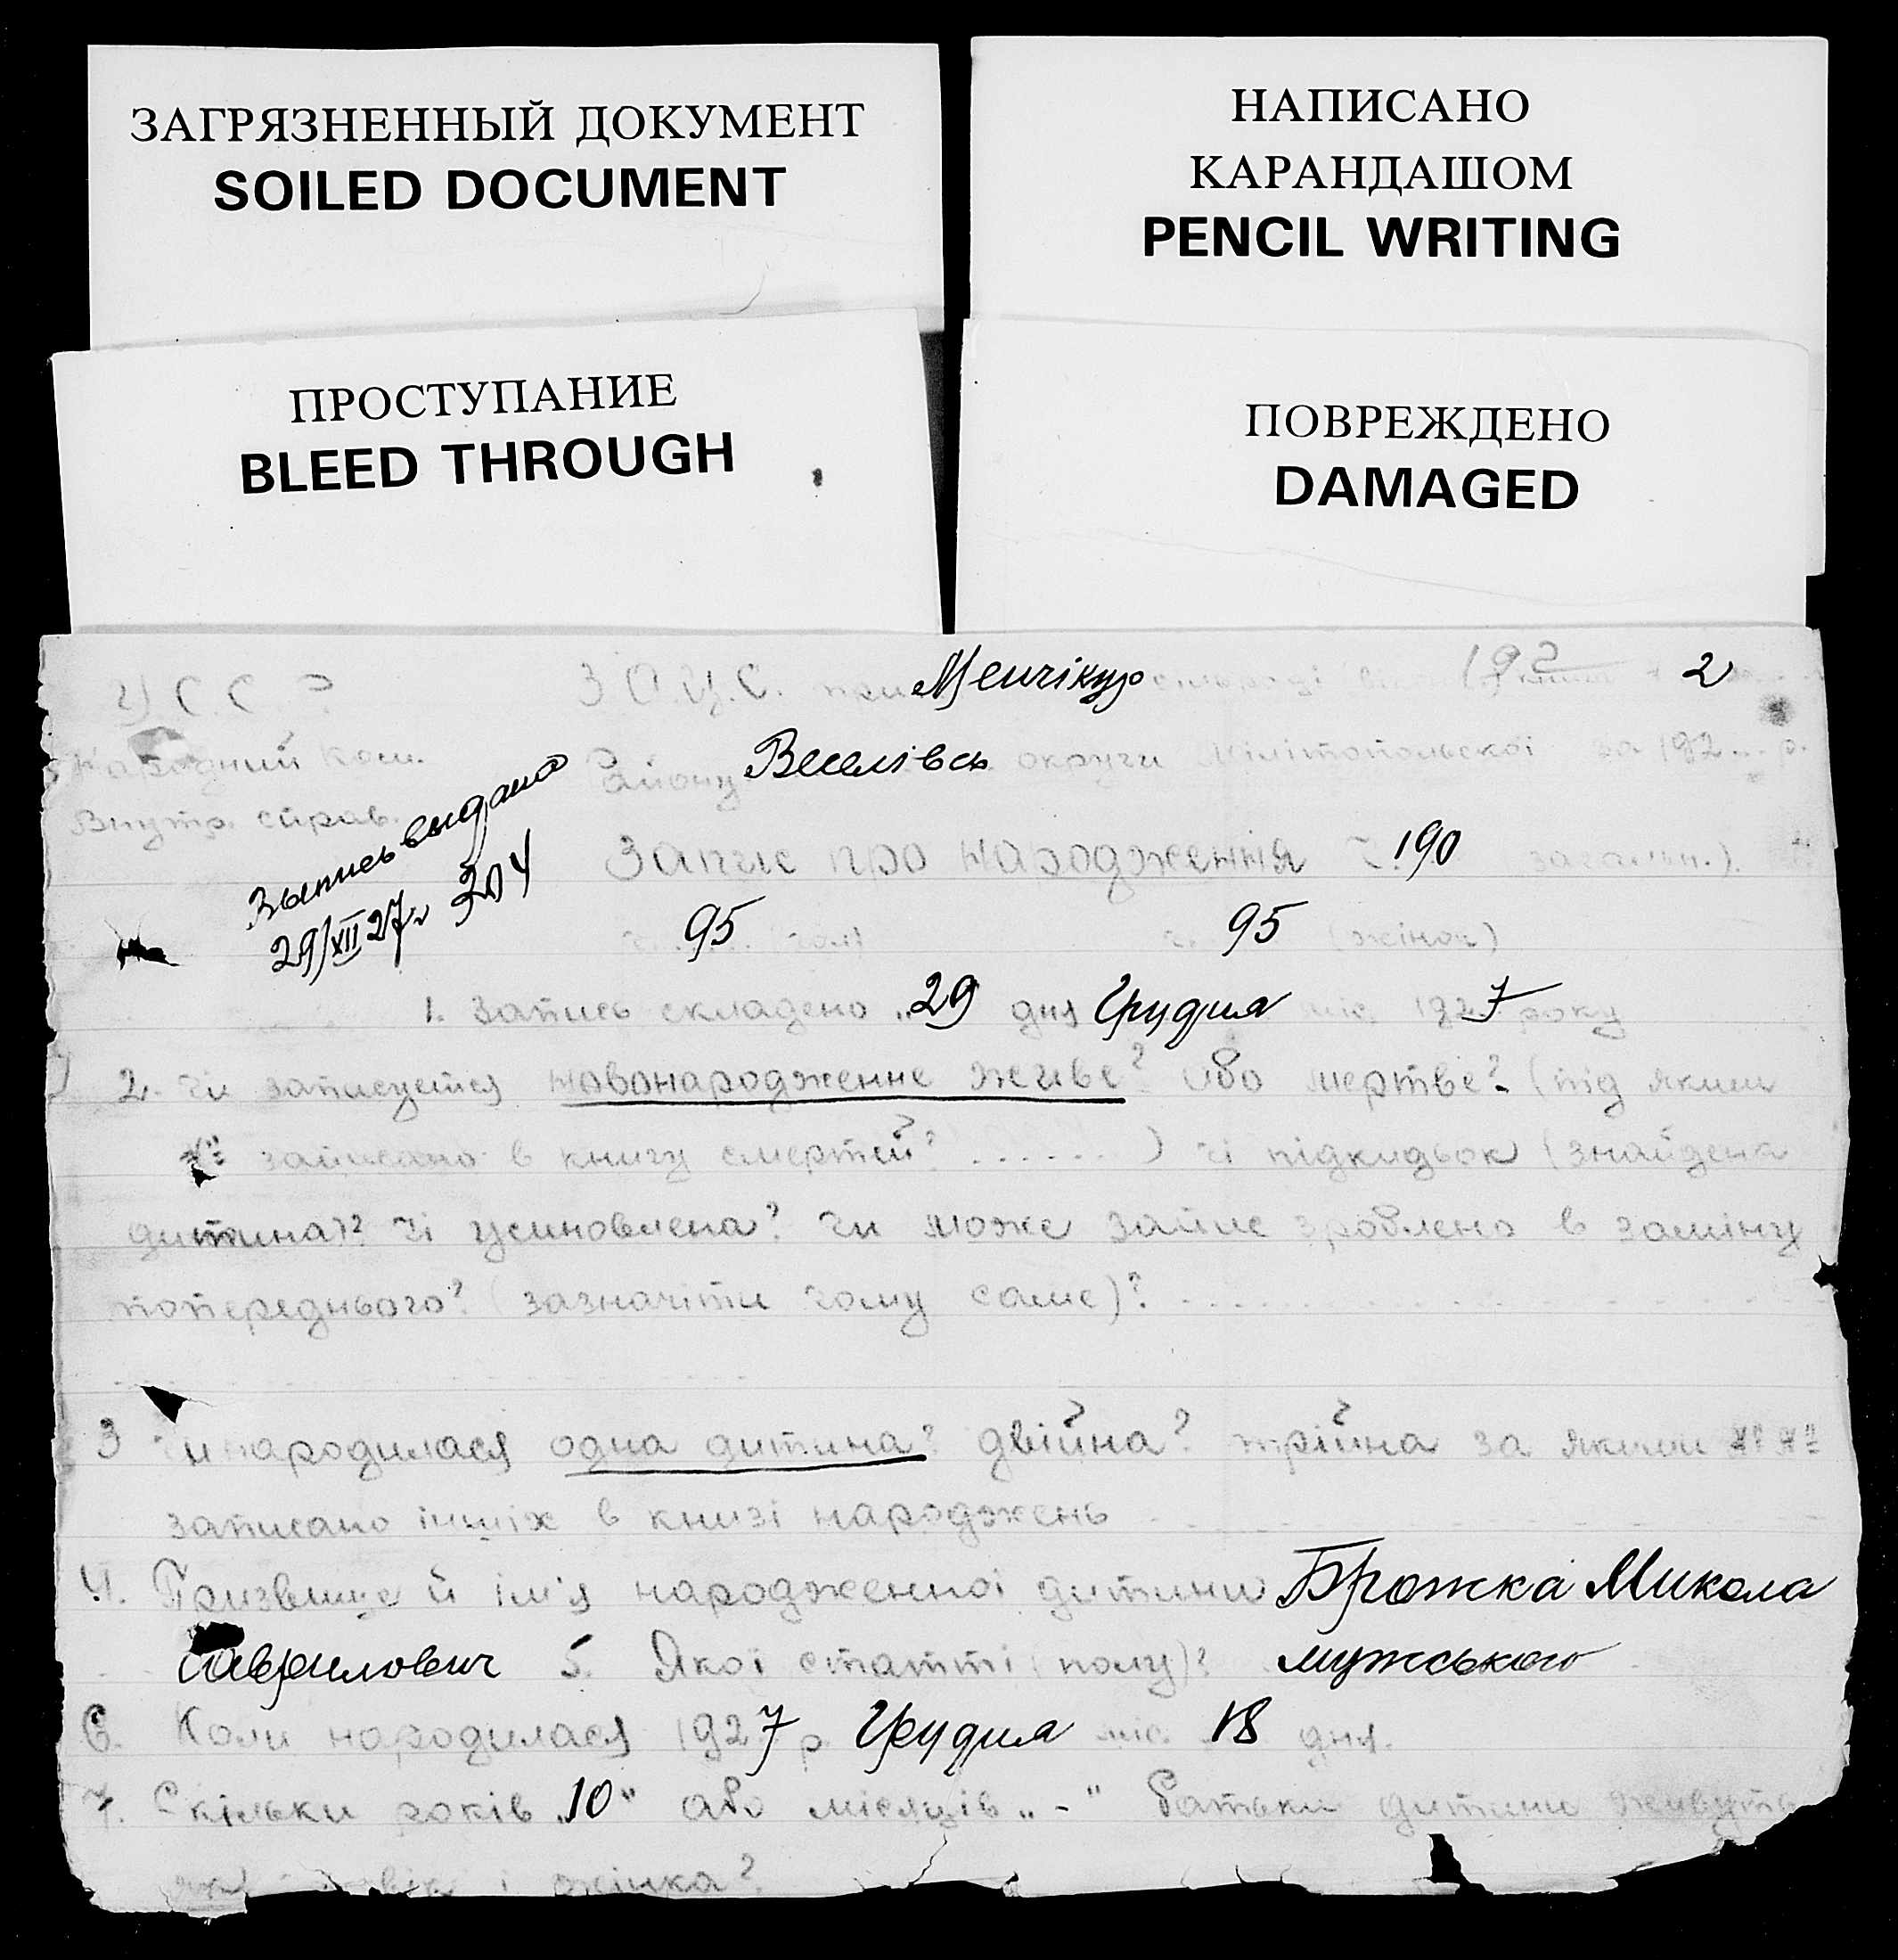 ЗАГРЯЗНЕННЫЙ ДОКУМЕНТ
SOILED DOCUMENT
НАПИСАНО
КАРАНДАШОМ
PENCIL WRITING
ПРОСТУПАНИЕ
BLEED THROUGH
ПОВРЕЖДЕНО
DAMAGED
З О.Ц.С. при 192 2
Народний Ком.
Внутр. справ.
Району Веселівсь округи Мілітопольскої за 192... р.
выдано
29/XII 27 г 304
Запис про народження ч. 190
ч. 95 95 (жінок)
1. Запись складено „29 дня Грудня міс. 1927 року
2. Чи записуется новонародженне живе? або мертве? (під яким
№ записано в книгу смертей? ......) чі підкидьок (знайдена
дитина)? чі усиновлена? чи може запис зроблено в заміну
попереднього? (зазначіти чому саме)?
3 Чи народилася одна дитина? двійна? трійна за якими №№
записано іншіх в книзі народжень
4. Призвище й ім'я народженної дитини Брожка Микола
Гаврилович 5. Якої статті (полу)? мужського
6. Коли народилася 1927 р. Грудня міс. 18 дня.
7. Скільки років „10" або місяців „-" батьки дитини живуть
і жінка?